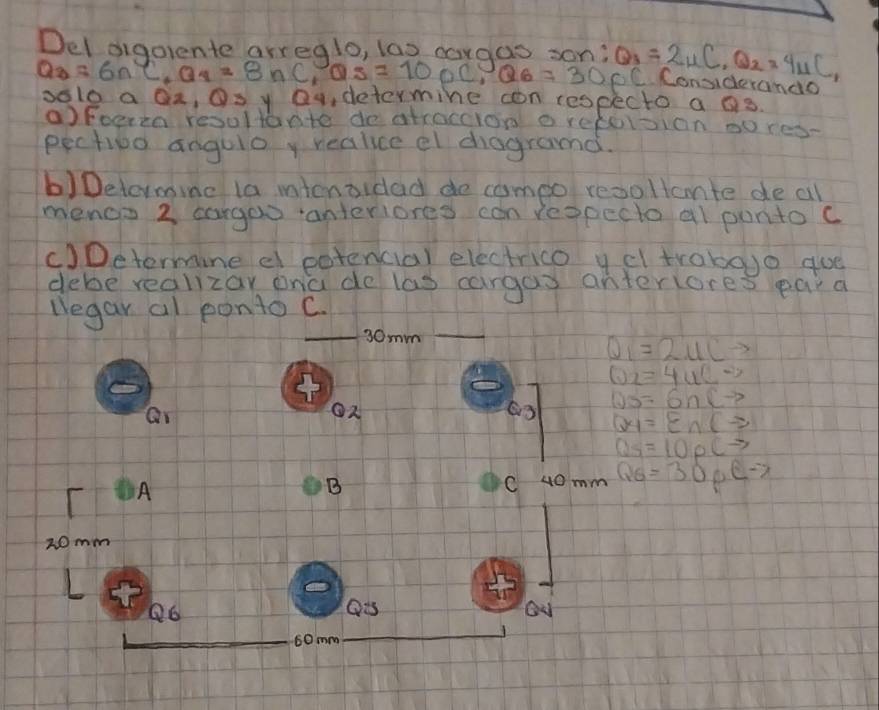 Del sigoiente arreglo, las cargas son: Q1 = 2μC, Q2 = 4μC,
Q3 = 6nC, Q4 = 8nC, Q5 = 10pC, Q6 = 30pC. Considerando
solo a Q2, Q3 y Q4, determine con respecto a Q3.
a) Foerza resoltante de atraccion o repulsion su res-
pectivo angulo y realice el diagrama.
b) Determine la intensidad de campo resoltante de al
menos 2 cargas anteriores con respecto al ponto C
c) Determine el potencial electrico y el trabajo que
debe realizar una de las cargas anteriores para
llegar al ponto C.
30mm
Q1 = 2μC →
Q2 = 4μC →
Q3 = 6nC →
Q4 = 8nC →
Q5 = 10pC →
Q6 = 30pC →
- Q1
+ Q2
- Q3
A
B
C
40mm
20mm
+ Q6
- Q5
+ Q4
60mm